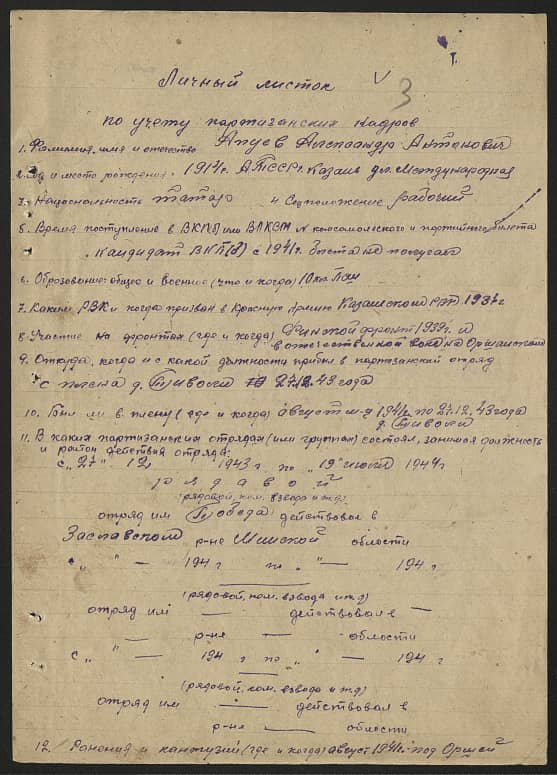 Личный листок
V 3
по учету партизанских кадров
1. Фамилия, имя и отечество Александр Антонович
2. Год и место рождения. 1914г. АТССР г. Казань ул. Международная
3. Национальность татар и Соцположение рабочий
5. Время поступления в ВКП(б) или ВЛКСМ № комсомольского и партийного билета
Кандидат ВКП(б) с 1941г. билета не получал
6. Образование: общее и военное (что и когда)
7. Каким РВК и когда призван в Красную Армию Казанском РВК 1937г
8. Участие на фронтах (где и когда) Финской фронт 1939г. и
в отечественной войне на Оршанском
9. Откуда, когда и с какой должности прибыл в партизанский отряд
с плена д. 27.12.43 года
10. Был ли в плену (где и когда) август м-ц 1941г. по 27.12.43 года
д.
11. В каких партизанских отрядах (или группах) состоял, занимая должность
и район действия отряда:
с „27" 12 1943 г. по „19" июля 1944г
рядавой
(рядовой, ком. взвода и т.д.)
отряд им Победа действовал в
Заславском р-не Минской области
с „ " — 194 г по „ " — 194 г.
(рядовой, ком. взвода и т.д)
отряд им — действовал в —
— р-не — области
с „ " — 194 г по „ " — 194 г
(рядовой, ком. взвода и т.д)
отряд им — действовал в
— р-не — области
12. Ранения и кантузии (где и когда) август 1941г. под Оршей